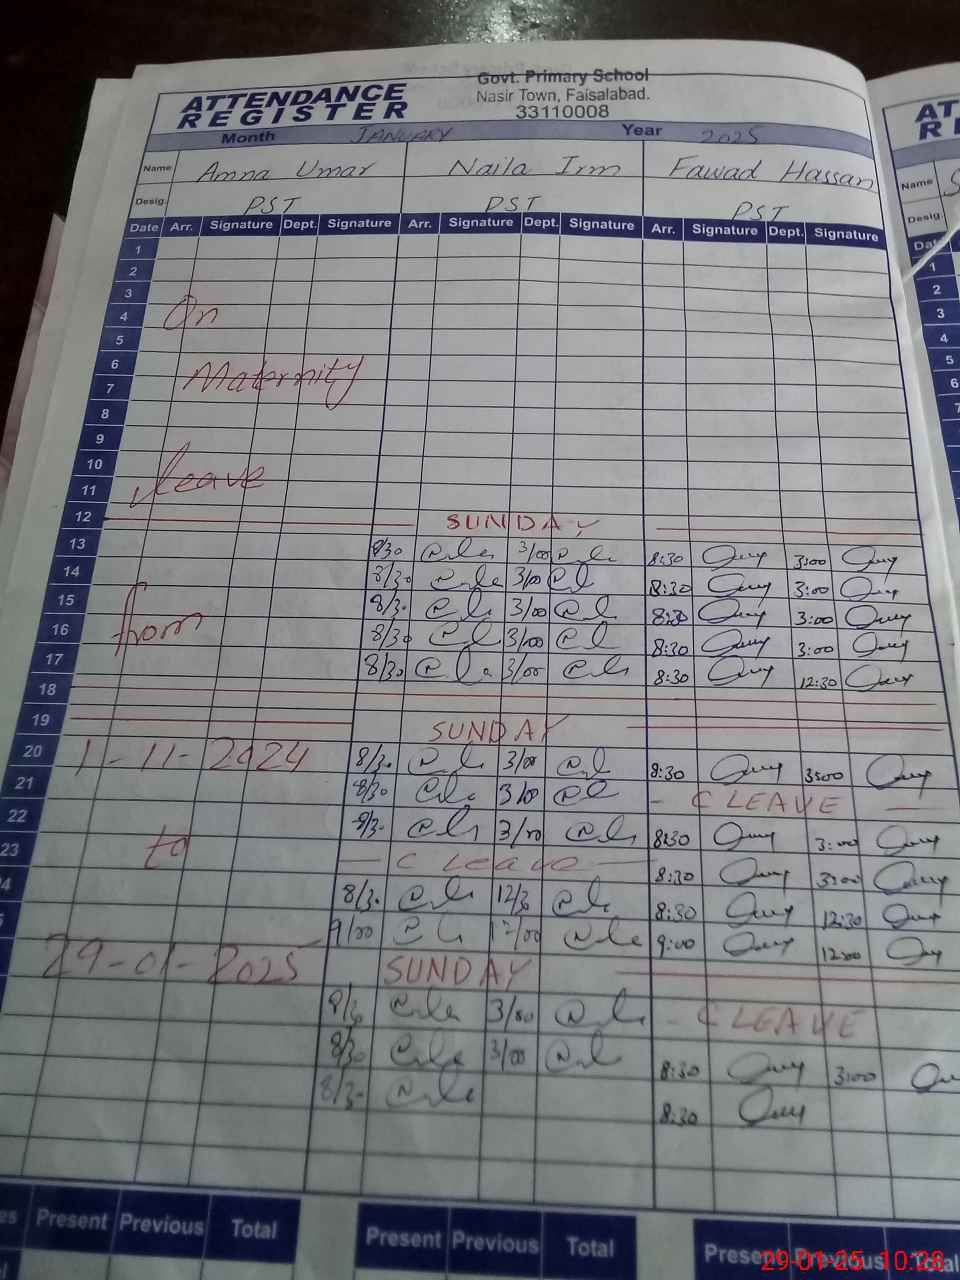 Govt. Primary School
Nasir Town, Faisalabad.
33110008
ATTENDANCE
REGISTER
Month JANUARY Year 2025
Name Amna Umar Naila Irm Fawad Hassan
Desig. PST PST PST
Date Arr. Signature Dept. Signature Arr. Signature Dept. Signature Arr. Signature Dept. Signature
1
2
3
4 On
5
6
7 Maternity
8
9
10
11 leave
12 SUNDAY
13 8/30 3/00 8:30 3:00
14 8/30 3/00 8:30 3:00
15 8/30 3/00 8:30 3:00
16 from 8/30 3/00 8:30 3:00
17 8/30 3/00 8:30 12:30
18
19 SUNDAY
20 1-11-2024 8/30 3/00 8:30 3:00
21 8/30 3/00 C LEAVE
22 8/30 3/00 8:30 3:00
23 to C Leave 8:30 3:00
24 8/30 12/30 8:30 12:30
9/00 12/00 9:00 12:00
29-01-2025 SUNDAY
8/30 3/00 C LEAVE
8/30 3/00 8:30 3:00
8/30 8:30
Present Previous Total Present Previous Total Present Previous Total
AT
R
Name S
Desig.
1
2
3
4
5
6
7
29-01-25 10:28